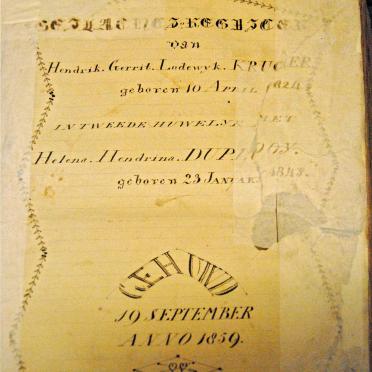 GESLAGTS REGISTER
van
Hendrik. Gerrit. Lodewyk. KRUGER
geboren 10 APRIL 1824
IN TWEEDE HUWELYK MET
Helena. Hendrina. DUPLOOY.
geboren 23 JANUAR.
GEHUWD
19 SEPTEMBER
ANNO 1859.